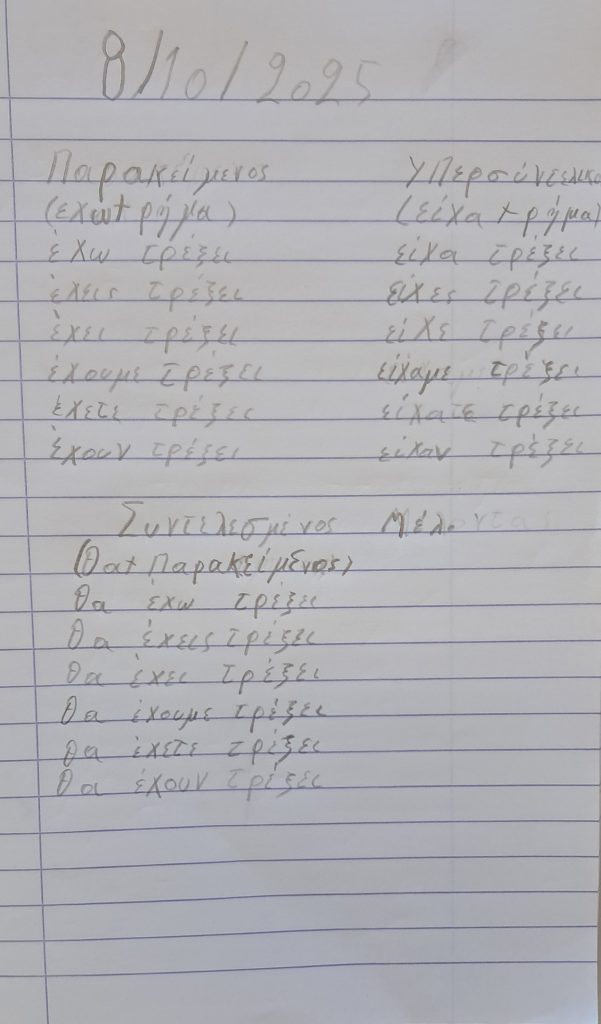 8/10/2025
Παρακείμενος Υπερσύντελικο
(έχω + ρήμα) (είχα + ρήμα)
έχω τρέξει είχα τρέξει
έχεις τρέξει είχες τρέξει
έχει τρέξει είχε τρέξει
έχουμε τρέξει είχαμε τρέξει
έχετε τρέξει είχατε τρέξει
έχουν τρέξει είχαν τρέξει
Συντελεσμένος Μέλοντας
(θα + Παρακείμενος)
θα έχω τρέξει
θα έχεις τρέξει
θα έχει τρέξει
θα έχουμε τρέξει
θα έχετε τρέξει
θα έχουν τρέξει